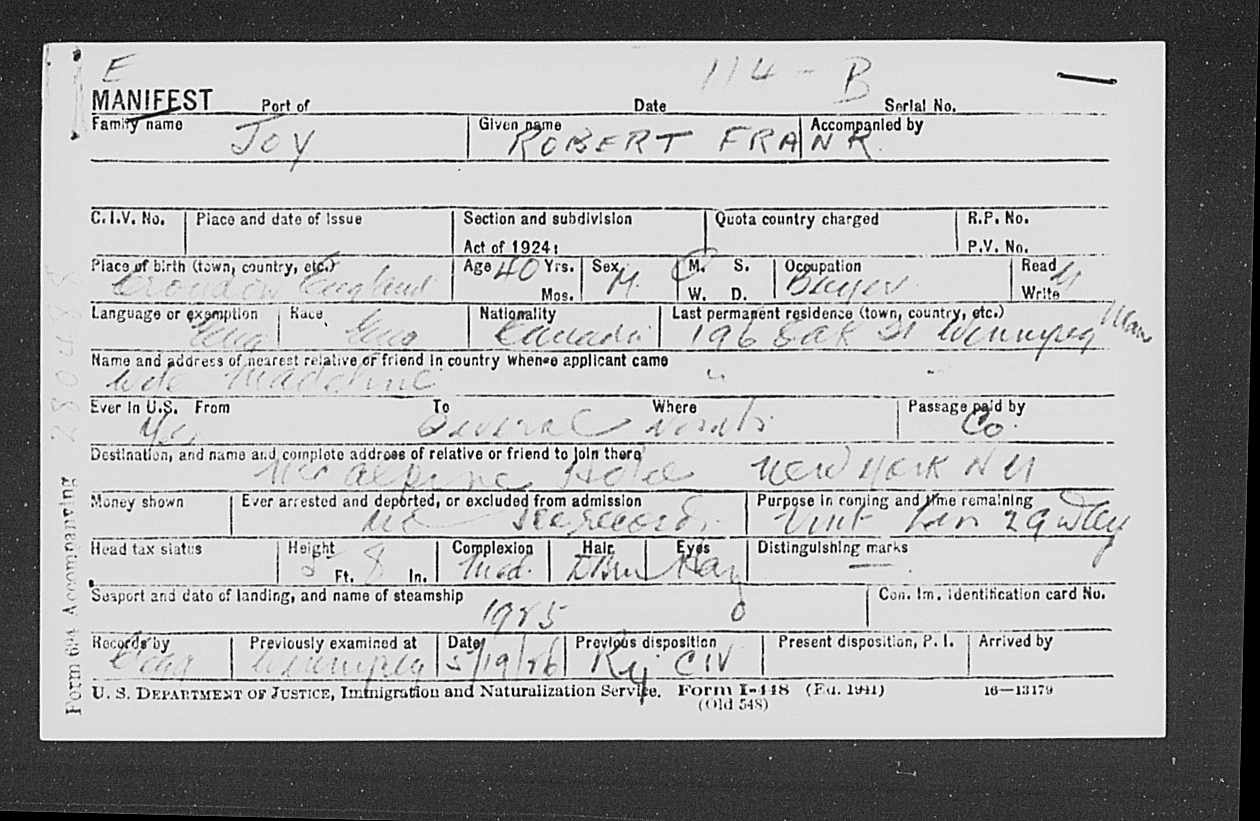 E
114 - B
MANIFEST Port of Date Serial No.
Family name Given name Accompanied by
JOY ROBERT FRANK
C.I.V. No. Place and date of issue Section and subdivision Quota country charged R.P. No.
Act of 1924: P.V. No.
Place of birth (town, country, etc.) Age 40 Yrs. Sex M. S. Occupation Read
Croydon England Mos. M. W. D. Buyer Write
Language or exemption Race Nationality Last permanent residence (town, country, etc.)
Eng Eng Canada 196 Oak St Winnipeg Man
Name and address of nearest relative or friend in country whence applicant came
wife Madeline
Ever in U.S. From To Where Passage paid by
Yes Several visits Co.
Destination, and name and complete address of relative or friend to join there
McAlpine Hotel New York N Y
Money shown Ever arrested and deported, or excluded from admission Purpose in coming and time remaining
No See record Visit 29 day
Head tax status Height Complexion Hair Eyes Distinguishing marks
5 Ft. 8 In. Med. D Brn Hazel —
Seaport and date of landing, and name of steamship Con. Im. Identification card No.
1925
Records by Previously examined at Date Previous disposition Present disposition, P. I. Arrived by
Winnipeg 5/19/26 Rej CIV
U. S. DEPARTMENT OF JUSTICE, Immigration and Naturalization Service. Form I-448 (Ed. 1941) 16—13179
(Old 548)
Form 694 Accompanying